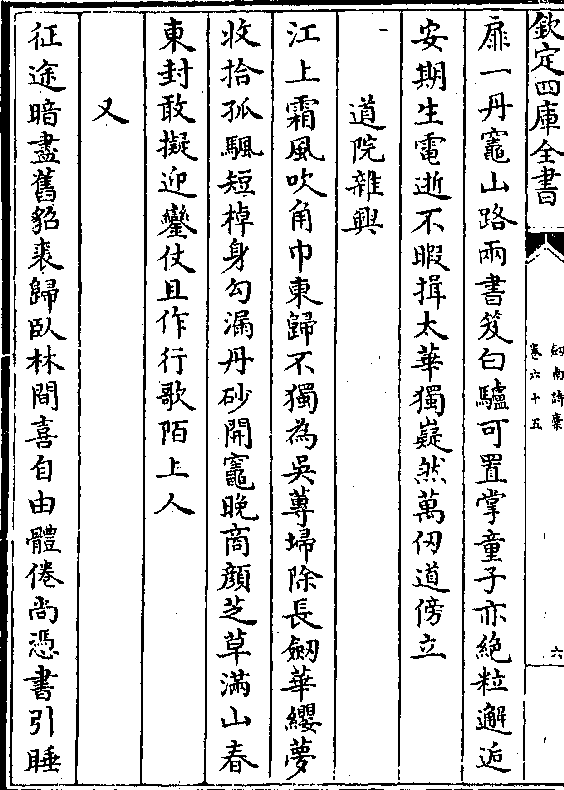 欽定四庫全書
劒南詩稾
卷六十五
六
扉一丹竈山路兩書笈白驢可置掌童子亦絶粒邂逅
安期生電逝不暇揖太華獨嶷然萬仞道傍立
道院雜興
江上霜風吹角巾東歸不獨為吳蓴埽除長劒華纓夢
收拾孤颿短棹身勾漏丹砂開竈晚商顔芝草滿山春
東封敢擬迎鑾仗且作行歌陌上人
又
征途暗盡舊貂裘歸卧林間喜自由體倦尚憑書引睡